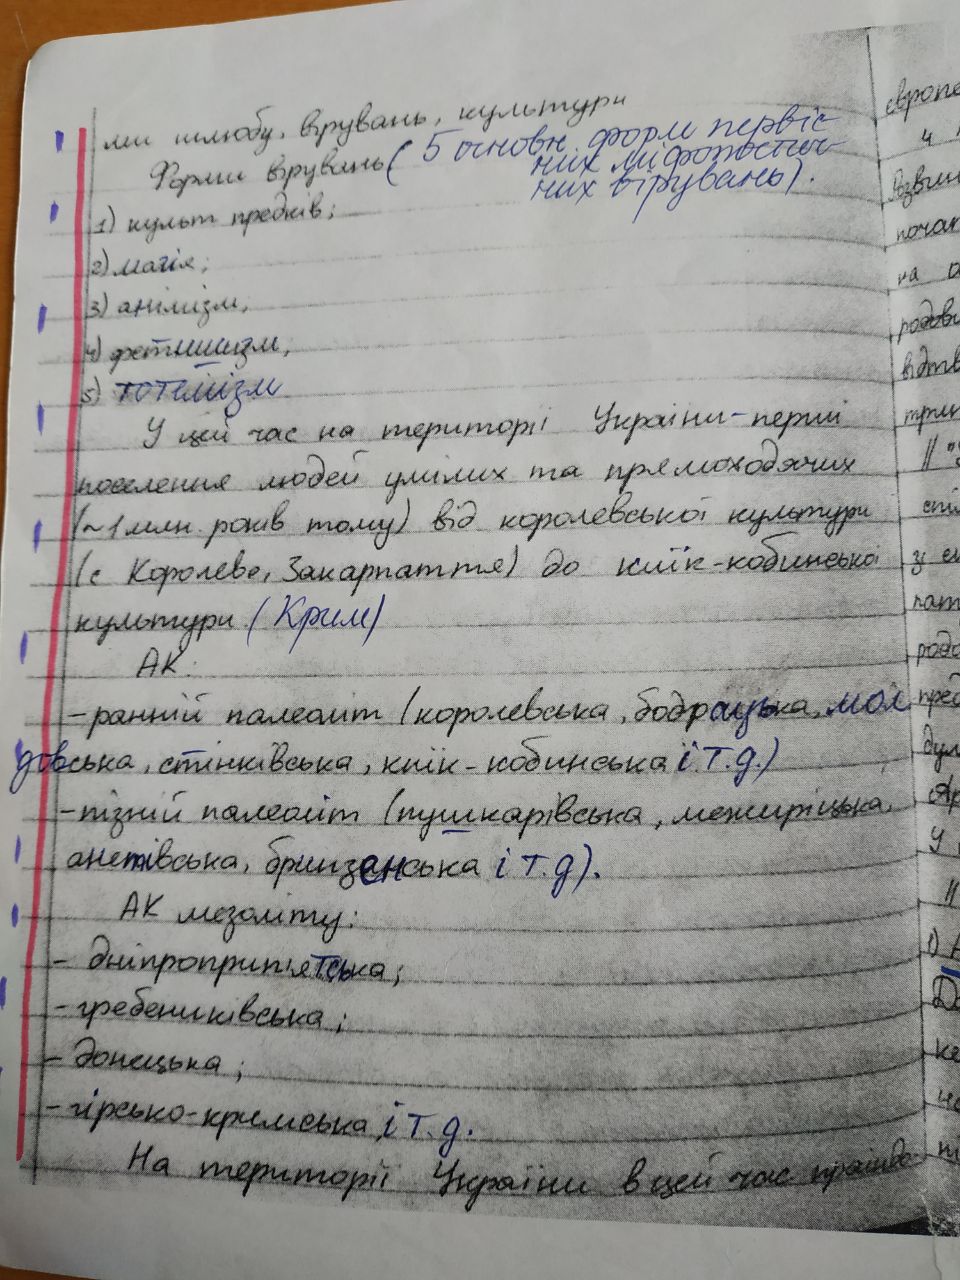 ми шлюбу, вірувань, культури
Форми вірувань (5 основн. форм первіс-
них міфопоетич-
них вірувань).
1) культ предків;
2) магія;
3) анімізм;
4) фетишизм;
5) тотемізм
У цей час на території України - перші
поселення людей умілих та прямоходячих
(~1 млн. років тому) від королевської культури
(с Королево, Закарпаття) до киїк-кобинської
культури (Крим)
АК:
- ранній палеоліт (королевська, бодрацька, мол
довська, стінківська, киїк-кобинська і т.д.)
- пізній палеоліт (пушкарівська, межиріцька,
анетівська, бринзенська і т.д).
АК мезоліту:
- дніпроприп'ятська;
- гребениківська;
- донецька;
- гірсько-кримська і т.д.
На території України в цей час
європе
ч
Розви
почат
на
родов
відтв
трип
спіл
у си
пат
родо
пред
дул
У
1)